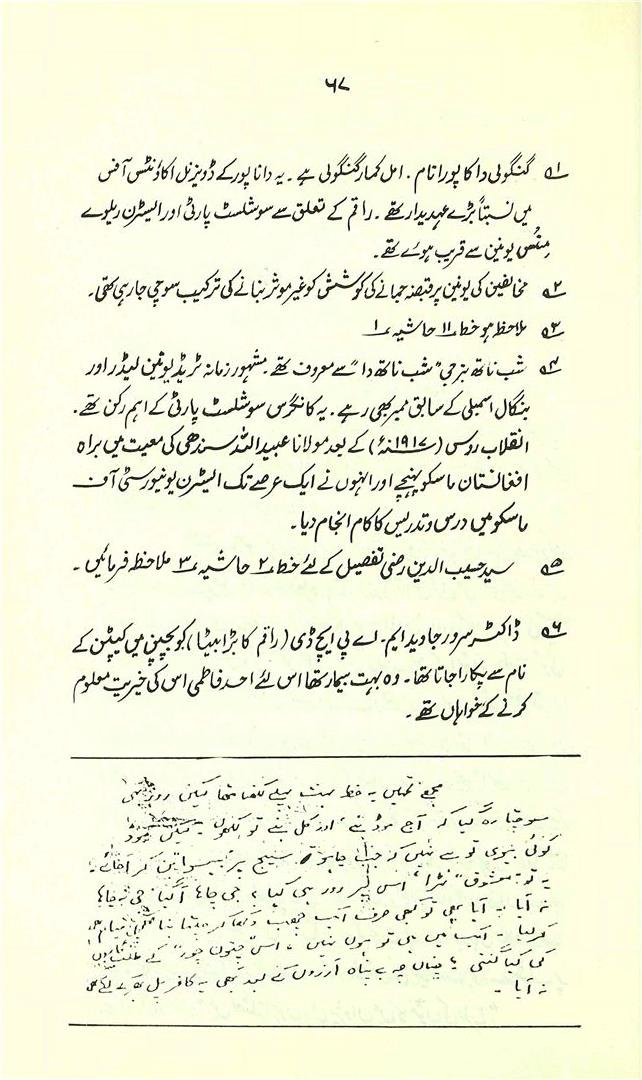 ۶۷
۱ گنگولی دا کا پورا نام ۔ امل کمار گنگولی ہے ۔ یہ دانا پور کے ڈویزنل اکاؤنٹس آفس
میں نسبتاً بڑے عہدیدار تھے ۔ راقم کے تعلق سے سوشلسٹ پارٹی اور ایسٹرن ریلوے
مینٔس یونین سے قریب ہوئے تھے ۔
۲ مخالفین کی یونین پر قبضہ جمانے کی کوشش کو غیر موثر بنانے کی ترکیب سوچی جا رہی تھی ۔
۳ ملاحظہ ہو خط ۱۱ حاشیہ ۱
۴ شب ناتھ بنرجی "شب ناتھ دا" سے معروف تھے ۔ مشہور زمانہ ٹریڈ یونین لیڈر اور
بنگال اسمبلی کے سابق ممبر بھی رہے ۔ یہ کانگرس سوشلسٹ پارٹی کے اہم رکن تھے ۔
انقلاب روس (۱۹۱۷ء) کے بعد مولانا عبید اللہ سندھی کی معیت میں براہ
افغانستان ماسکو پہنچے اور انہوں نے ایک عرصے تک ایسٹرن یونیورسٹی آف
ماسکو میں درس و تدریس کا کام انجام دیا ۔
۵ سید حسیب الدین رضی تفصیل کے لئے خط ۲ حاشیہ ۳ ملاحظہ فرمائیں ۔
۶ ڈاکٹر سرور جاوید ایم ۔ اے پی ایچ ڈی (راقم کا بڑا بیٹا) کو بچپن میں کیپٹن کے
نام سے پکارا جاتا تھا ۔ وہ بہت بیمار تھا اس لئے احمد فاطمی اس کی خیریت معلوم
کرنے کے خواہاں تھے ۔
مجھے تمہیں یہ خط بہت پہلے لکھنا تھا لیکن روز یہی
سوچتا رہ گیا کہ آج موڈ بنے اور کل بنے تو لکھوں ۔ لیکن موڈ
کوئی بیوی تو ہے نہیں کہ جب چاہو سیج پر آجائے ۔
یہ تو معشوق ٹھرا ، اس پر زور ہی کیا ، جی چاہا آگیا جی نہ چاہا
نہ آیا ۔ آیا بھی تو کبھی صرف ایک جھلک دکھا کر
کرلیا ۔ ایک میں ہی تو ہوں نہیں ، اس کے
کی کیا گنتی ۔ چناں چہ بے پناہ آرزوں کے بعد بھی یہ کافر
نہ آیا ۔